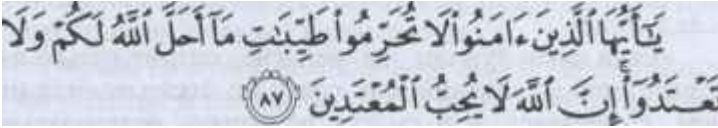 يَـٰٓأَيُّهَا ٱلَّذِينَ ءَامَنُوا۟ لَا تُحَرِّمُوا۟ طَيِّبَـٰتِ مَآ أَحَلَّ ٱللَّهُ لَكُمْ وَلَا
تَعْتَدُوٓا۟ ۚ إِنَّ ٱللَّهَ لَا يُحِبُّ ٱلْمُعْتَدِينَ ﴿٨٧﴾